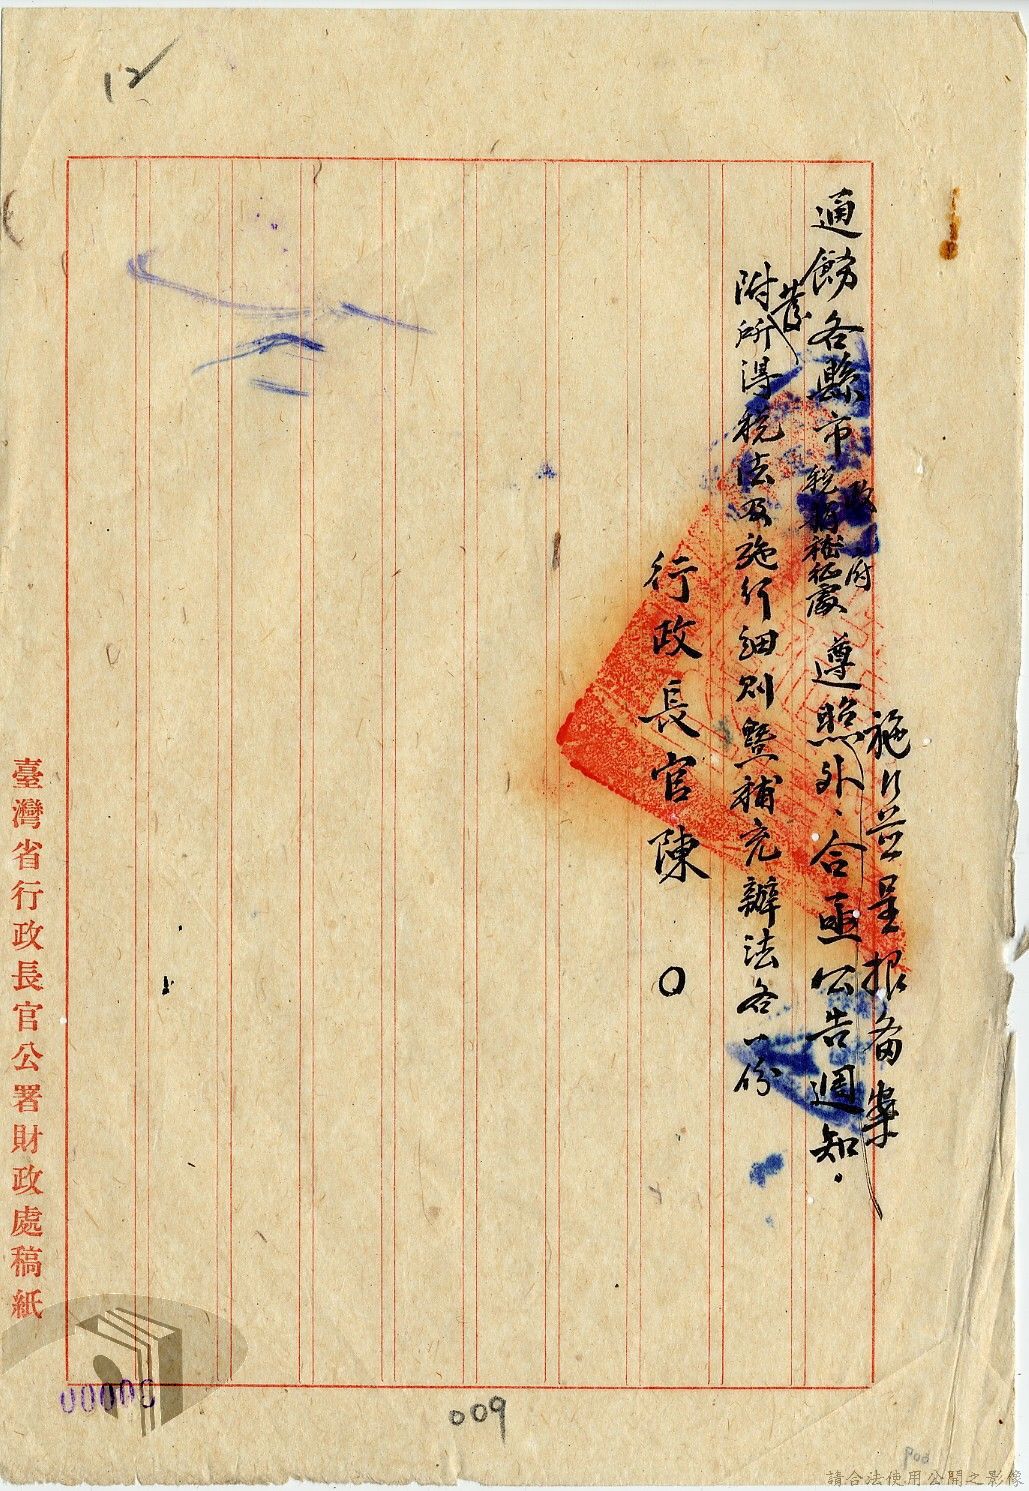 12
施行並呈報備案
通飭各縣市政府稅務稽征處遵照外、合亟公告週知。
茲
附所得稅法及施行細則暨補充辦法各一份
行政長官陳〇
臺灣省行政長官公署財政處稿紙
009
請合法使用公開之影像